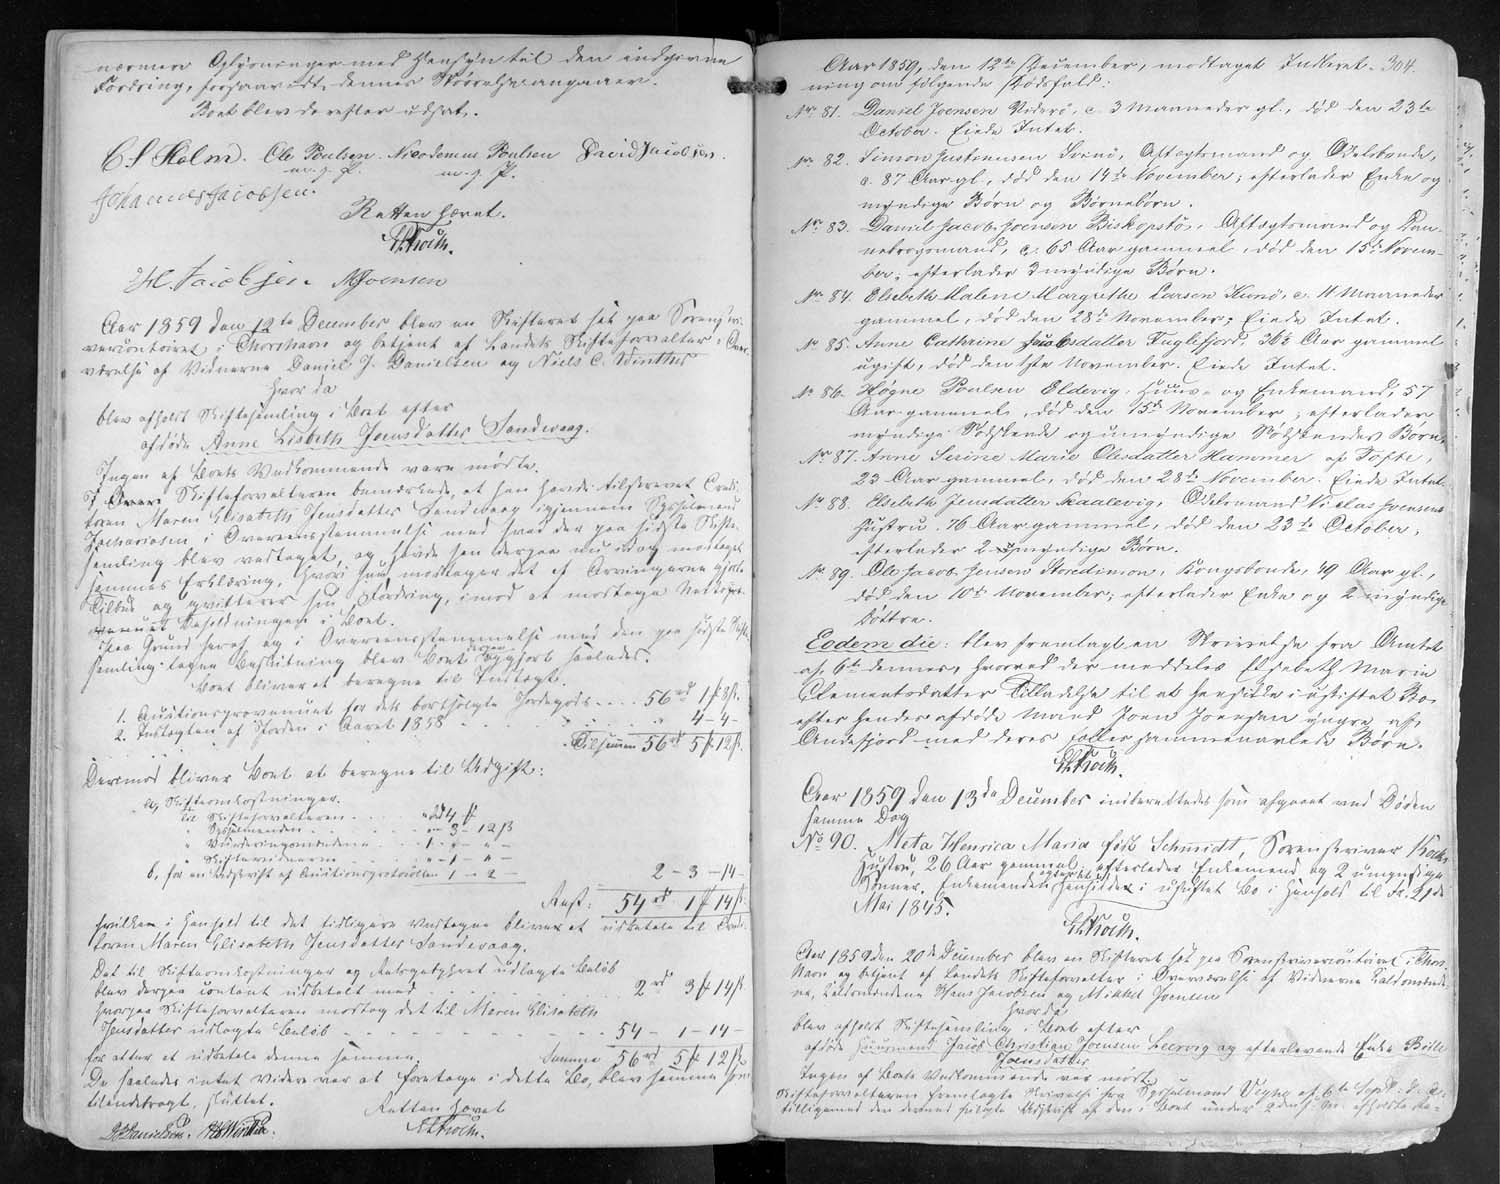 nærmere Oplysninger med Hensyn til den indgivne
Fordring, forsaavidt dennes Størrelse angaaer.
Boet blev derefter udsat.
C. S. Holm. Ole Poulsen. Nicodemus Poulsen David Jacobsen.
m. f. P. m. f. P.
Johannes Jacobsen.
Retten hævet.
H. Jacobsen. M Joensen
Aar 1859 den 12te December blev en Skifteret sat paa Sorenskri-
vercontoiret i Thorshavn og betjent af Landets Skifteforvalter i Over-
værelse af Vidnerne Daniel J. Danielsen og Niels C. Winther
Hvorda
blev afholdt Skiftesamling i Boet efter
afdøde Anne Lisbeth Joensdatter Sandevaag.
Ingen af Boets Vedkommende vare mødte.
Skifteforvalteren bemærkede, at han havde tilskrevet Credi-
toren Maren Elisabeth Jensdatter Sandevaag igjennem Sysselmand
Zachariasen i Overeensstemmelse med hvad der paa sidste Skifte-
samling blev vedtaget, og havde han derpaa nu idag modtaget
sammes Erklæring, hvori hun modtager det af Arvingerne gjorte
Tilbud og qvitterer sin Fordring, imod at modtage
Beholdningen i Boet.
Paa Grund heraf og i Overeensstemmelse med den paa sidste Skifte-
samling tagne Beslutning blev Boet opgjort saaledes.
Boet bliver at beregne til Indtægt.
1. Auctionsprovenuet for det bortsolgte Jordegods .... 56 rd 1 ƒ 8 ß.
2. Indtægten af Jorden i Aaret 1858 . . . . . . " 4 - 4 -
Tilsammen 56 rd 5 ƒ 12 ß.
Derimod bliver Boet at beregne til Udgift:
a, Skifteomkostninger.
til Skifteforvalteren . . . " rd 4 ƒ
" Sysselmanden . . . . " - 3 - 12 ß
" Vurderingsmændene . . 1 - " - " -
" Skiftevidnerne . . . " - 1 - " -
b, for en Udskrift af Auctionsprotocollen 1 - 2 -
2 - 3 - 14 -
Rest: 54 rd 1 ƒ 14 ß.
hvilken i Henhold til det tidligere Vedtagne bliver at udbetale til Credi-
toren Maren Elisabeth Jensdatter Sandevaag.
Det til Skifteomkostninger og udlagte Beløb
blev derpaa contant udbetalt med . . . . . 2 rd 3 ƒ 14 ß.
hvorpaa Skifteforvalteren modtog det til Maren Elisabeth
Jensdatter udlagte Beløb - - - - - - 54 - 1 - 14 -
for atter at udbetale denne samme. Summa 56 rd 5 ƒ 12 ß
Da saaledes intet videre var at foretage i dette Bo, blev samme som
tilendebragt, sluttet.
Retten hævet
D J Danielsen. N C Winther.
304.
Aar 1859, den 12te December, modtaget Indberet-
ning om følgende Dødsfald:
No 81. Daniel Joensen Viderø, c. 3 Maaneder gl., død den 23de
October. Eiede Intet.
No 82. Simon Justenussen Svinø, Aftægtsmand og Odelsbonde,
c. 87 Aar gl., død den 14de November; efterlader Enke og
myndige Børn og Børnebørn.
No 83. Daniel Jacob Joensen Biskopstø, Aftægtsmand og Dan-
nebrogsmand, c. 65 Aar gammel, død den 15de Novem-
ber; efterlader 3 myndige Børn.
No 84. Elsebeth Malene Margrethe Larsen Kunø, c. 11 Maaneder
gammel, død den 28de November; Eiede Intet.
No 85. Anne Cathrine Jacobsdatter Fuglefjord, 36½ Aar gammel
ugift, død den 1ste November. Eiede Intet.
No 86. Høgne Poulsen Eldevig, Huus- og Enkemand, 57
Aar gammel, død den 15de November; efterlader
myndige Sødskende og umyndige Sødskendes Børn.
No 87. Anne Serine Marie Olesdatter Hammer af Tofte,
23 Aar gammel, død den 28de November. Eiede Intet.
No 88. Elsebeth Jensdatter Skaalevig, Odelsmand Nicolas Joensens
Hustru, 76 Aar gammel, død den 23de October,
efterlader 2 myndige Børn.
No 89. Ole Jacob Jensen Storetimon, Kongsbonde, 49 Aar gl.,
død den 10de November; efterlader Enke og 2 myndige
Døttre.
Eodem die: blev fremlagt en Skrivelse fra Amtet
af 6te dennes, hvorved der meddeles Elsebeth Marie
Clementsdatter Tilladelse til at hensidde i uskiftet Bo
efter hendes afdøde Mand Joen Joensen yngre af
Andefjord med deres fælles sammenavlede Børn.
Aar 1859 den 13de December indberettedes som afgaaet ved Døden
samme Dag
No 90. Meta Henrica Maria født Schmidt, Sorenskriver Kochs
Hustru, 26 Aar gammel, efterlader Enkemand og 2 umyndige
Sønner. Enkemanden hensidder i uskiftet Bo i Henhold til Fr. 21de
Mai 1845.
Aar 1859 den 20de December blev en Skifteret sat paa Sorenskrivercontoiret i Thors-
havn og betjent af Landets Skifteforvalter i Overværelse af Vidnerne
Hans Jacobsen og Mikkel Joensen
Hvorda
blev afholdt Skiftesamling i Boet efter
afdøde Huusmand Jacob Christian Joensen Leervig og efterlevende Enke Bolle
Joensdatter
Ingen af Boets Vedkommende var mødt.
Skifteforvalteren fremlagte Skrivelse fra Sysselmand af 6te Sept. d. A.
tilligemed den dermed fulgte Udskrift af den i Boet under